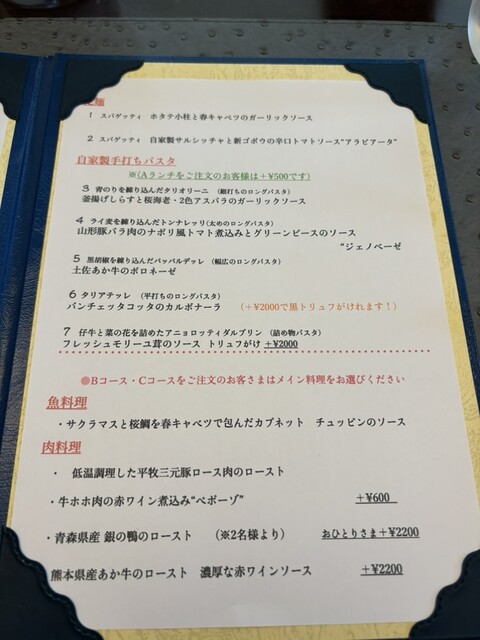 麺
1 スパゲッティ ホタテ小柱と春キャベツのガーリックソース
2 スパゲッティ 自家製サルシッチャと新ゴボウの辛口トマトソース“アラビアータ”
自家製手打ちパスタ
※(Aランチをご注文のお客様は+¥500です)
3 青のりを練り込んだタリオリーニ (細打ちのロングパスタ)
釜揚げしらすと桜海老・2色アスパラのガーリックソース
4 ライ麦を練り込んだトンナレッリ(太めのロングパスタ)
山形豚バラ肉のナポリ風トマト煮込みとグリーンピースのソース
“ジェノベーゼ
5 黒胡椒を練り込んだパッパルデッレ (幅広のロングパスタ)
土佐あか牛のボロネーゼ
6 タリアテッレ (平打ちのロングパスタ)
パンチェッタコッタのカルボナーラ (+¥2000で黒トリュフがけれます!)
7 仔牛と菜の花を詰めたアニョロッティダルプリン (詰め物パスタ)
フレッシュモリーユ茸のソース トリュフがけ +¥2000
●Bコース・Cコースをご注文のお客さまはメイン料理をお選びください
魚料理
・サクラマスと桜鯛を春キャベツで包んだカプネット チュッピンのソース
肉料理
・ 低温調理した平牧三元豚ロース肉のロースト
・牛ホホ肉の赤ワイン煮込み“ペポーゾ” +¥600
・青森県産 銀の鴨のロースト (※2名様より) おひとりさま+¥2200
熊本県産あか牛のロースト 濃厚な赤ワインソース +¥2200